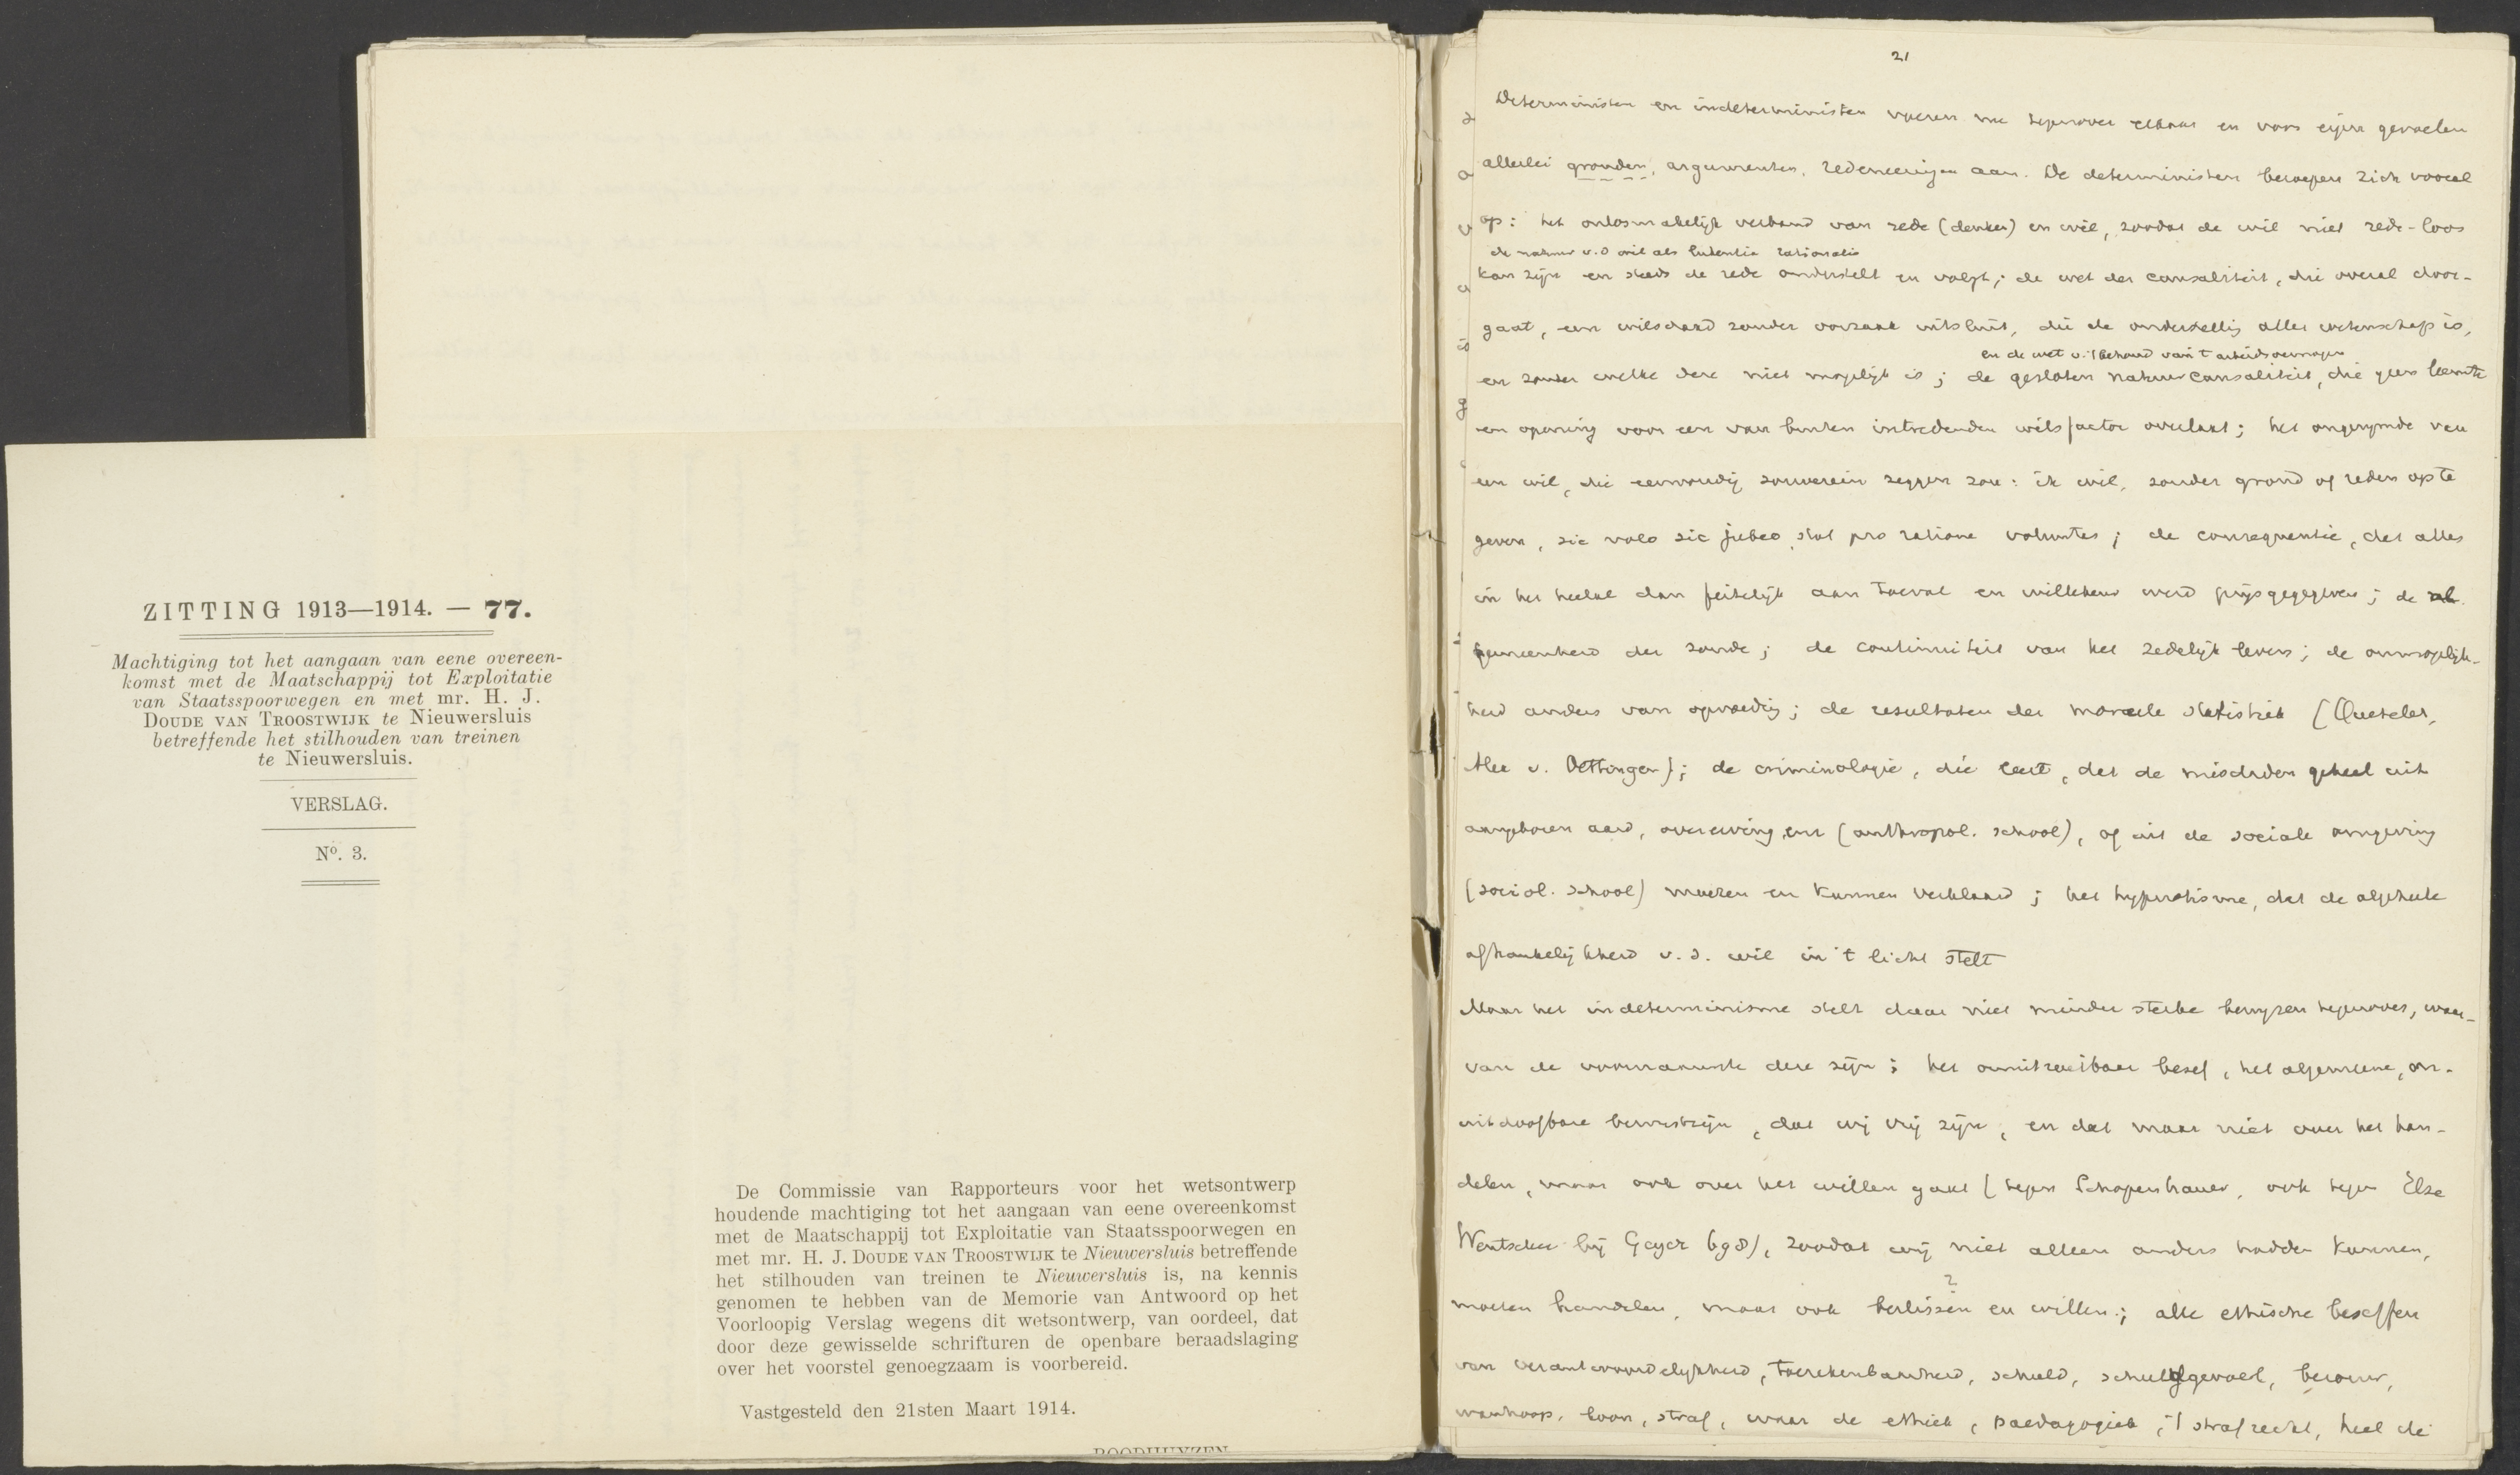 ZITTING 1913—1914. — 77.
Machtiging tot het aangaan van eene overeen-
komst met de Maatschappij tot Exploitatie
van Staatsspoorwegen en met mr. H. J.
DOUDE VAN TROOSTWIJK te Nieuwersluis
betreffende het stilhouden van treinen
te Nieuwersluis.
VERSLAG.
No. 3.
De Commissie van Rapporteurs voor het wetsontwerp
houdende machtiging tot het aangaan van eene overeenkomst
met de Maatschappij tot Exploitatie van Staatsspoorwegen en
met mr. H. J. DOUDE VAN TROOSTWIJK te Nieuwersluis betreffende
het stilhouden van treinen te Nieuwersluis is, na kennis
genomen te hebben van de Memorie van Antwoord op het
Voorloopig Verslag wegens dit wetsontwerp, van oordeel, dat
door deze gewisselde schrifturen de openbare beraadslaging
over het voorstel genoegzaam is voorbereid.
Vastgesteld den 21sten Maart 1914.
ROODHUYZEN
21
Deterministen en indeterministen voeren nu tegenover elkaar en voor eigen gevoelen
allerlei gronden, argumenten, redeneeringen aan. De deterministen beroepen zich vooral
op: het onlosmakelijk verband van rede (denken) en wil, zoodat de wil niet rede-loos
de natuur v.d wil als rationalis
kan zijn en steeds de rede onderstelt en volgt; de wet der causaliteit, die overal door-
gaat, een wilsdaad zonder oorzaak uitsluit, die de onderstelling aller wetenschap is,
en de wet v. 't behoud van 't arbeidsvermogen
en zonder welke deze niet mogelijk is; de gesloten natuurcausaliteit, die geen leemte
en opening voor een van buiten intredenden wilsfactor overlaat; het ongerijmde van
een wil, die eenvoudig souverein zeggen zou: ik wil, zonder grond of reden op te
geven, sic volo sic jubeo, stat pro ratione voluntas; de consequentie, dat alles
in het heelal dan feitelijk aan toeval en willekeur werd prijsgegegeven; de al-
gemeenheid der zonde; de continuiteit van het zedelijk leven; de onmogelijk-
heid anders van opvoeding; de resultaten der moreele statistiek (Quetelet,
Alex v. Oettingen); de criminologie, die leert, dat de misdaden geheel uit
aangeboren aard, overerving enz (anthropol. school), of uit de sociale omgeving
(sociol. school) moeten en kunnen verklaard; het hypnotisme, dat de algeheele
afhankelijkheid v. d. wil in 't licht stelt
Maar het indeterminisme stelt daar niet minder sterke bewijzen tegenover, waar-
van de voornaamste deze zijn: het onuitroeibaar besef, het algemeene, on-
uitdoofbare bewustzijn, dat wij vrij zijn, en dat maar niet over het han-
delen, maar ook over het willen gaat (tegen Schopenhauer, ook tegen Else
Wentscher bij Geyer bg 8), zoodat wij niet alleen anders hadden kunnen,
?
moeten handelen, maar ook beslissen en willen; alle ethische beseffen
van verantwoordelijkheid, toerekenbaarheid, schuld, schuldgevoel, berouw,
wanhoop, loon, straf, waar de ethiek, paedagogiek, 't strafrecht, heel de